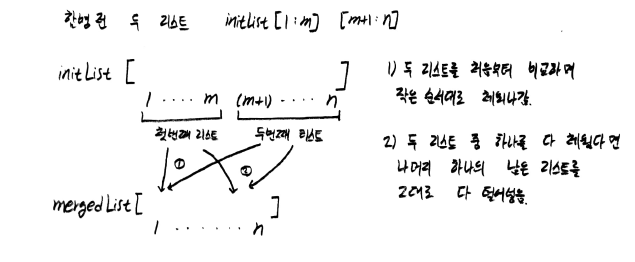 합병 전 두 리스트 initList [1:m] [m+1:n]
initList [ ]
1 ···· m (m+1) ···· n
첫번째 리스트 두번째 리스트
① ②
mergedList [ ]
1 ······· n
1) 두 리스트를 처음부터 비교하며
작은 순서대로 채워나감.
2) 두 리스트 중 하나를 다 채웠다면
나머지 하나의 남은 리스트를
그대로 다 털어넣음.